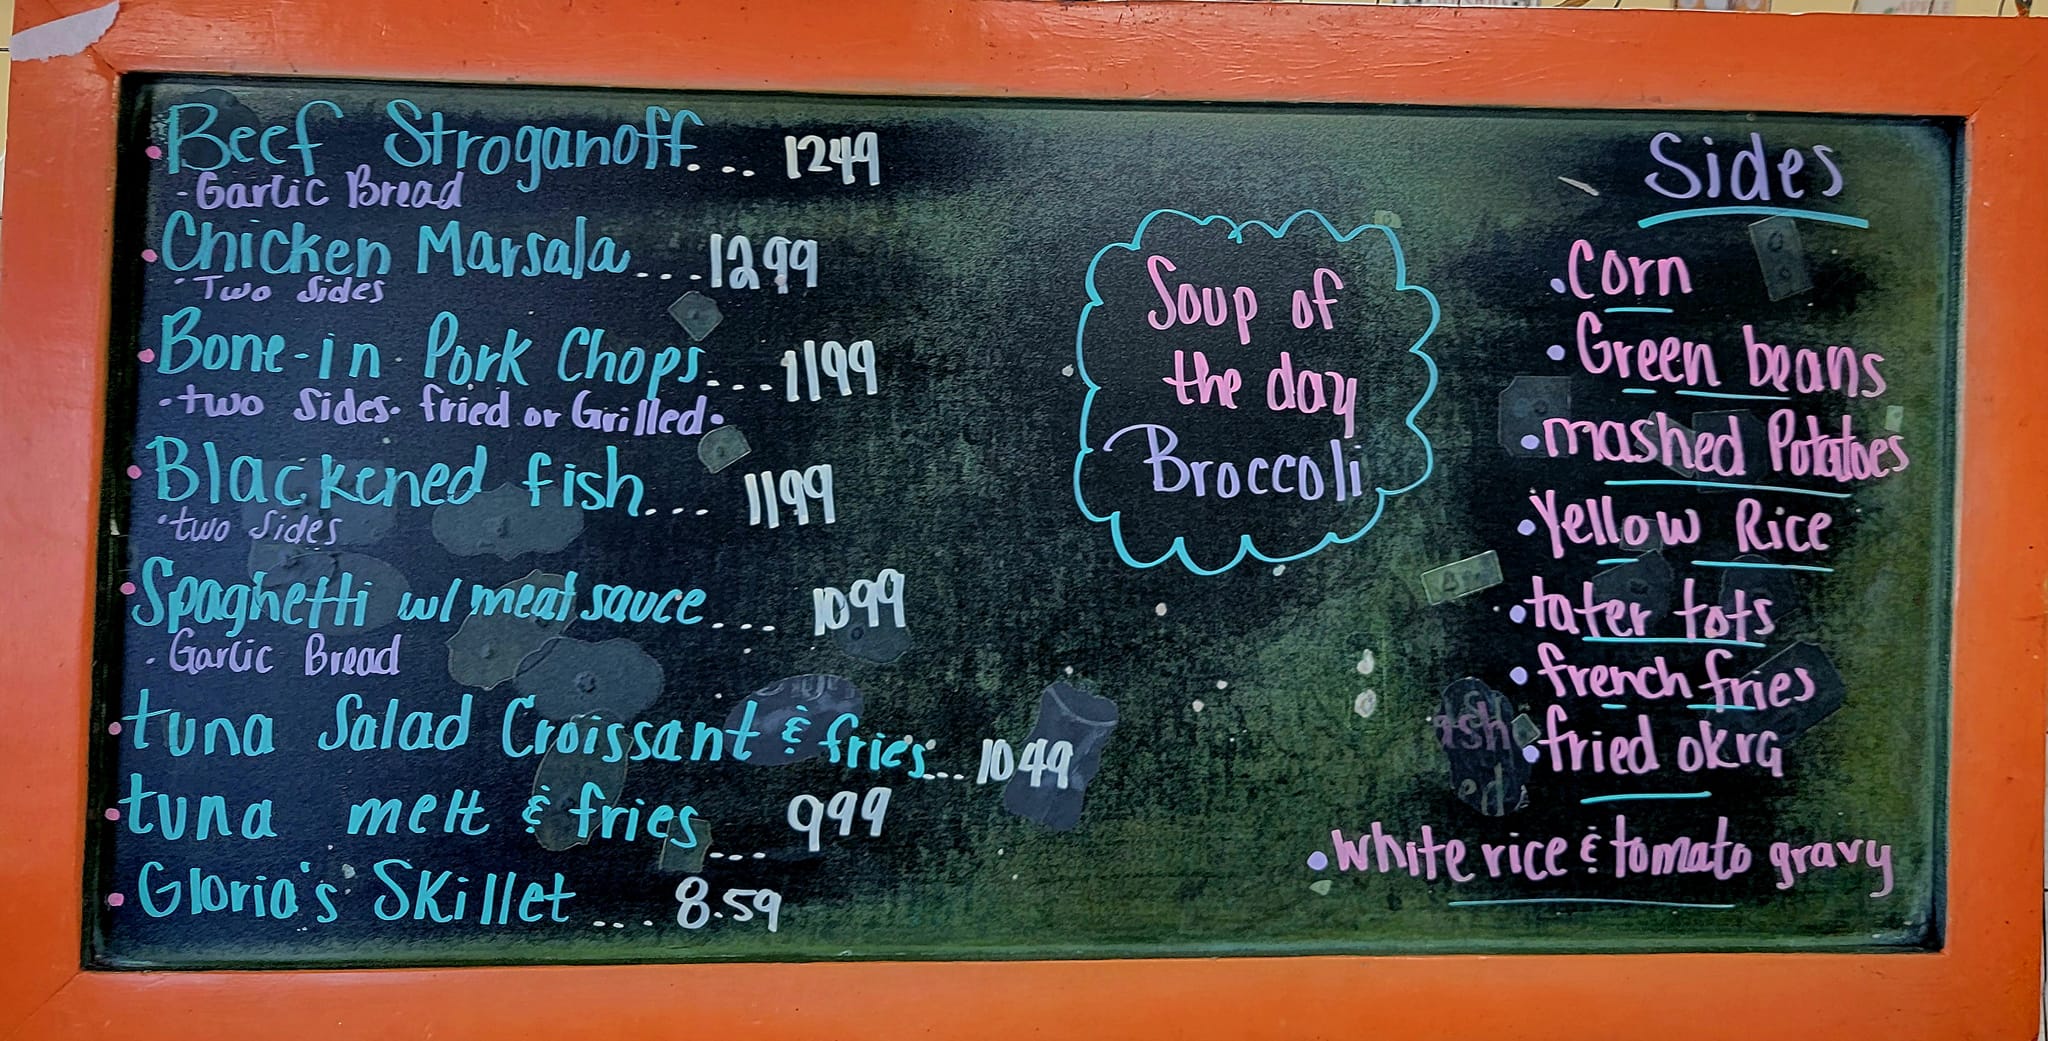 Beef Stroganoff... 1249
- Garlic Bread
Chicken Marsala....1299
· Two Sides
Bone-in Pork Chops...1199
· two sides. fried or Grilled.
Blackened fish... 1199
· two sides
Spaghetti w/ meat sauce.... 1099
· Garlic Bread
tuna Salad Croissant & fries... 1049
tuna melt & fries.... 999
Gloria's Skillet .... 8.59
Soup of
the day
Broccoli
Sides
Corn
Green beans
mashed Potatoes
Yellow Rice
tater tots
french fries
fried okra
white rice & tomato gravy